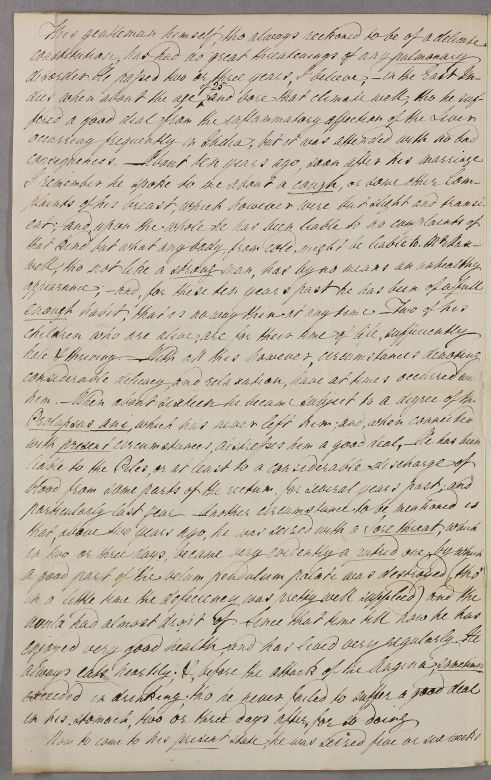 This gentleman himself, tho always reckoned to be of a delicate
constitution, has had no great threatenings of any pulmonary
disorder. He passed two or three years, I believe, – in the East In-
dies when about the age of 25 and bore that climate well, tho he suf-
fered a good deal from the inflammatory affection of the Liver
occurring frequently in India; but it was attended with no bad
consequences. – About ten years ago, soon after his marriage
I remember he spoke to me about a cough, or some other Com-
plaints of his breast, which however were but slight and transi-
ent; and, upon the whole he has been liable to no complaints of
that kind but what any body, from cold, might be liable to. Mr
well, tho not like a strong man, has by no means an unhealthy
appearance; – had, for these ten years past he has been of a full
enough habit, that is no way thin at any time – Two of his
children who are alive, are for their time of life, sufficiently
hale & thriving. – With all this however, circumstances denoting
considerable delicacy and relaxation, have at times occurred in
him. – When about sixteen he became subject to a degree of the
Prolapsus ani, which has never left him; and, when connected
with present circumstances, distresses him a good deal. He has been
liable to the Piles, or at least to a considerable discharge of
blood from some parts of the rectum, for several years past; and
particularly last year – Another circumstance to be mentioned is
that, above two years ago, he was seized with a sore throat, which
in two or three days, became very evidently a putrid one, by which
a good part of the velum pendulum palati was destroyed (tho'
in a little time the deficiency was pretty well supplied) and the
uvula had almost dropt off. Since that time till now he has
enjoyed very good health and has lived very regularly. He
always eats heartily. &, before the attack of the Angina, sometimes
exceeded in drinking, tho he never failed to suffer a good deal
in his stomach, two or three days after, for so doing
Now to come to his present state, he was seized five or six weeks